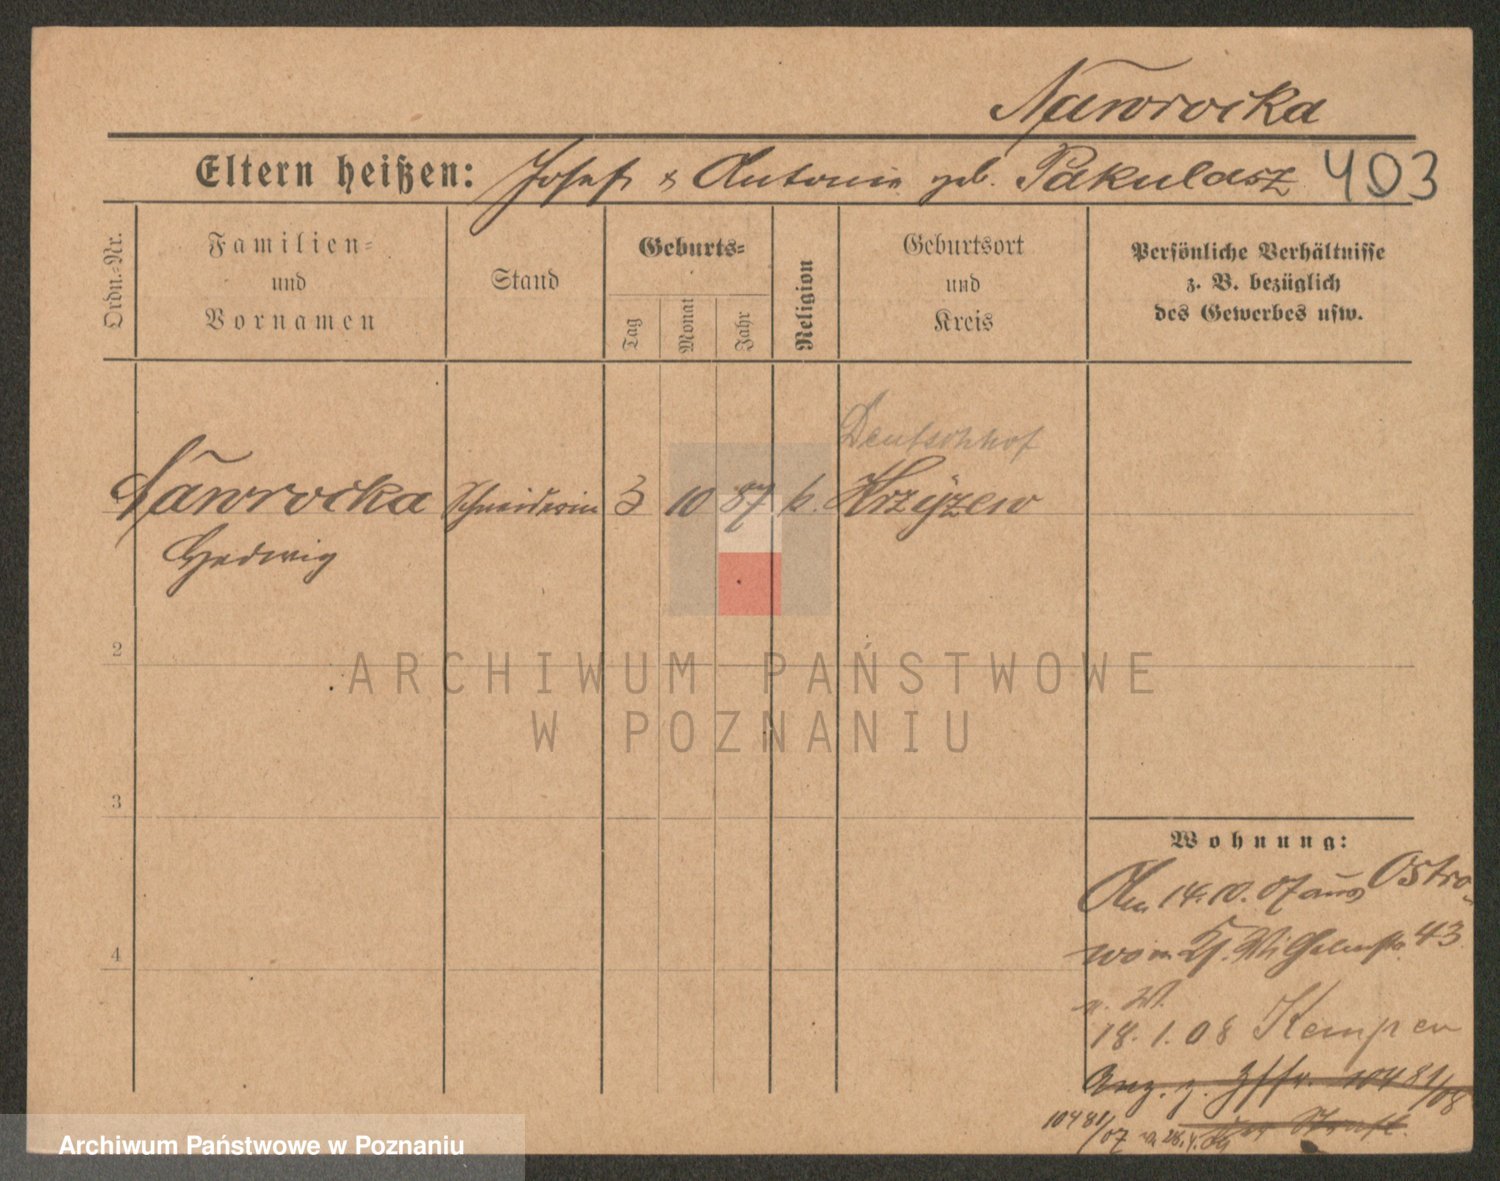 Nawrocka
Eltern heißen: Josef & Antonie geb. Pakulasz 403
Ordn.-Nr.
Familien-
und
Vornamen
Stand
Geburts-
Tag
Monat
Jahr
Religion
Geburtsort
und
Kreis
Persönliche Verhältnisse
z. B. bezüglich
des Gewerbes usw.
Deutschhof
Nawrocka Schneiderin 3 10 87 k. Krzyżew
Hedwig
2
ARCHIWUM PAŃSTWOWE
W POZNANIU
3
Wohnung:
Am 14.10.07 aus Ostro-
wo n. Wilhelmstr. 43
18.1.08 Kempen
Anz. z. 10481/08
10481/07
Archiwum Państwowe w Poznaniu